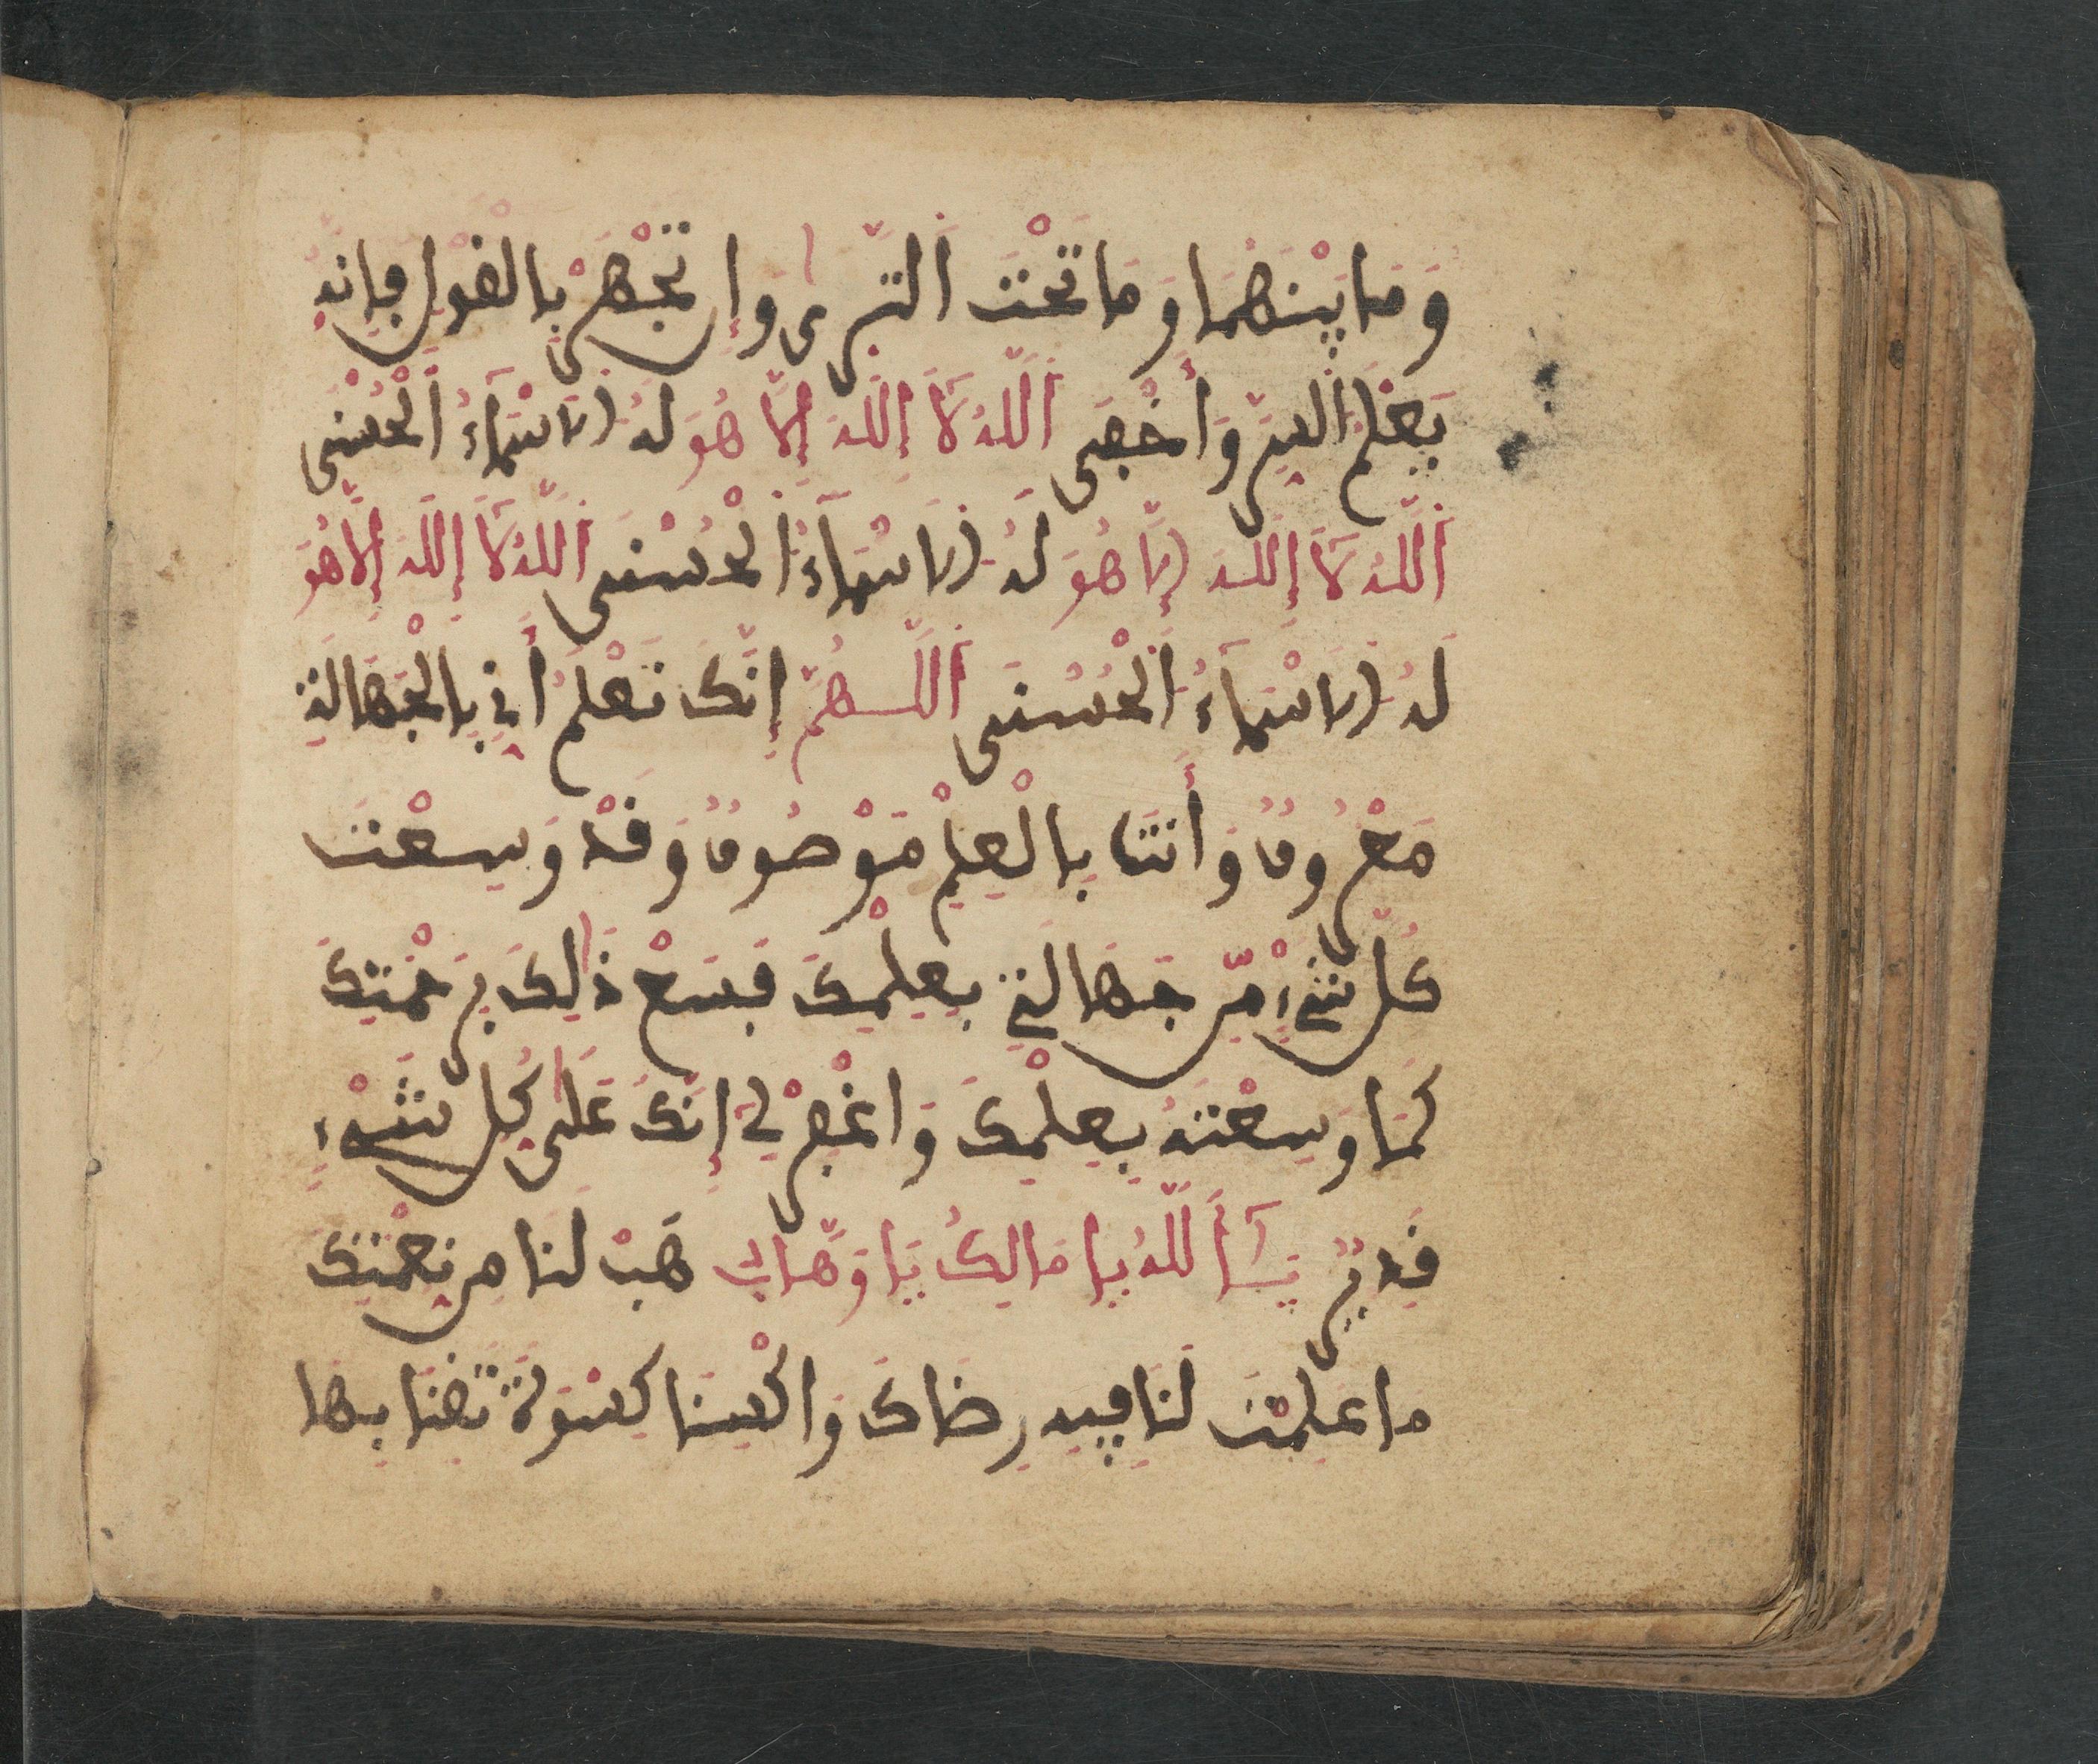 وَمَا بَيْنَهُمَا وَمَا تَحْتَ اَلثَّرٰى وَإِن تَجْهَرْ بِالْقَوْلِ فَإِنَّهُ
يَعْلَمُ اَلسِّرَّ وَأَخْفَى اَللَّهُ لَآ إِلَٰهَ إِلَّا هُوَ لَهُ اُلَاسْمَآءُ اُلْحُسْنَى
اَللَّهُ لَآ إِلَٰهَ إِلَّا هُوَ لَهُ اُلَاسْمَآءُ اُلْحُسْنَى اَللَّهُ لَآ إِلَٰهَ إِلَّا هُوَ
لَهُ اُلَاسْمَآءُ اُلْحُسْنَى اَللَّهُمَّ إِنَّكَ تَعْلَمُ أَنِّي بِالْجَهَالَةِ
مَعْرُوفٌ وَأَنتَ بِالْعِلْمِ مَوْصُوفٌ وَقَدْ وَسِعْتَ
كُلَّ شَيْءٍ مِّن جَهَالَتِي بِعِلْمِكَ فَسَعْ ذَٰلِكَ بِرَحْمَتِكَ
كَمَا وَسِعْتَهُ بِعِلْمِكَ وَاغْفِرْ لِي إِنَّكَ عَلَىٰ كُلِّ شَيْءٍ
قَدِيرٌ يَـآ أَللَّهُ يَا مَالِكُ يَا وَهَّابُ هَبْ لَنَا مِن نِعْمَتِكَ
مَا عَلِمْتَ لَنَا فِيهِ رِضَاكَ وَاكْسِنَا كِسْوَةً تَقِنَا بِهَا